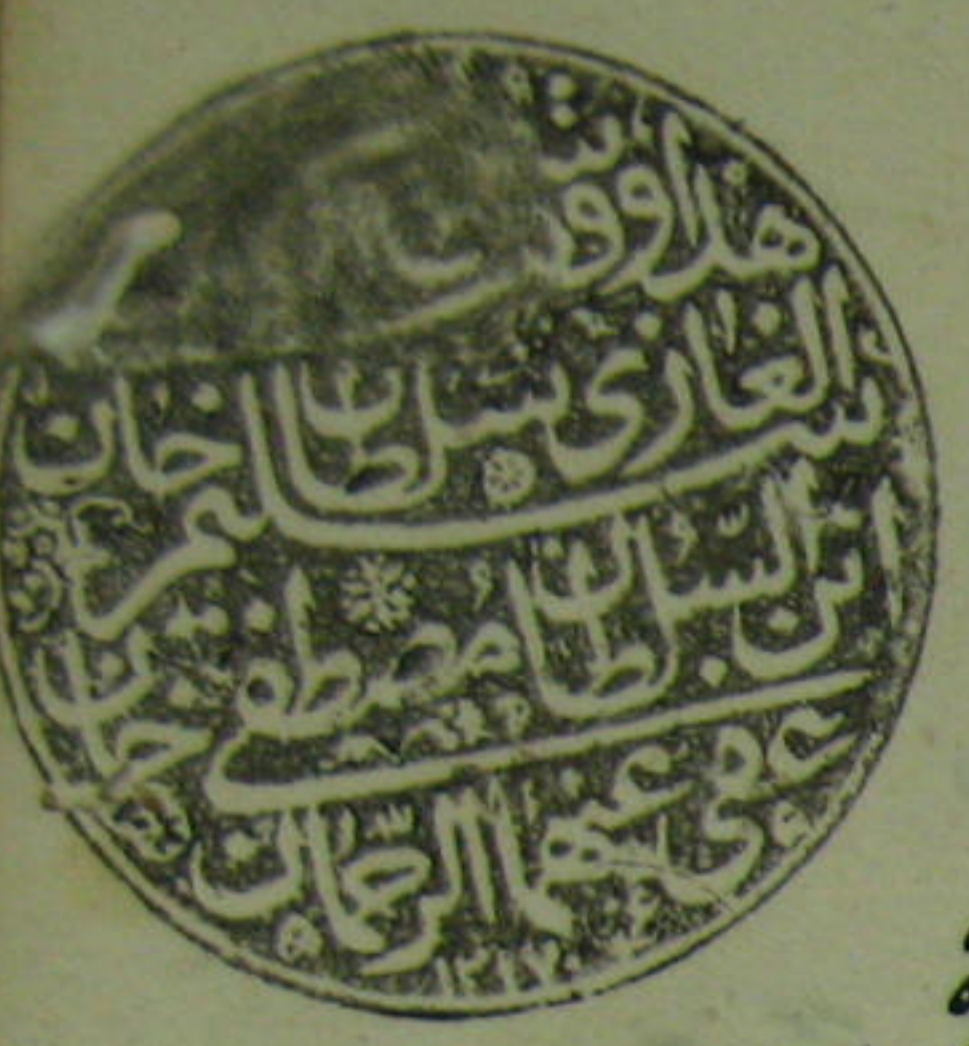 هذا وقف
الغازى سلطان سليم خان
ابن السلطان مصطفى خان
عفى عنهما الرحمان
١٢١٧